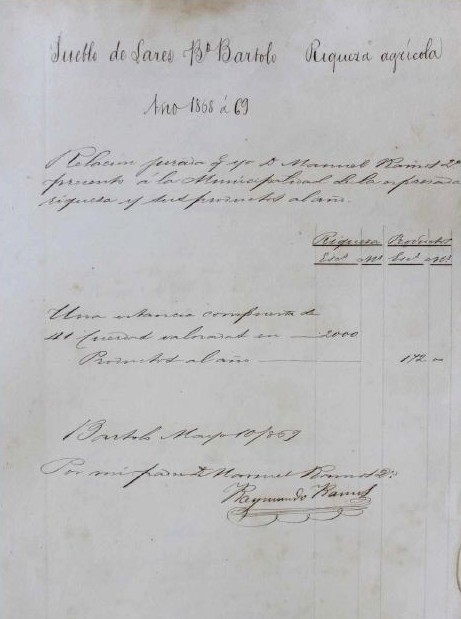 Pueblo de Lares Bº Bartolo Riqueza agrícola
Año 1868 á 69
Relacion jurada q yo D. Manuel Ramos 2º
presento á la Municipalidad de la espresada
riqueza y sus productos al año.
Riqueza Productos
Escs Ms Escs Ms
Una estancia compuesta de
41 Cuerdas valoradas en 2000
Productos al año 172
Bartolo Mayo 10/869
Por mi padre D. Manuel Ramos 2º
Raymundo Ramos